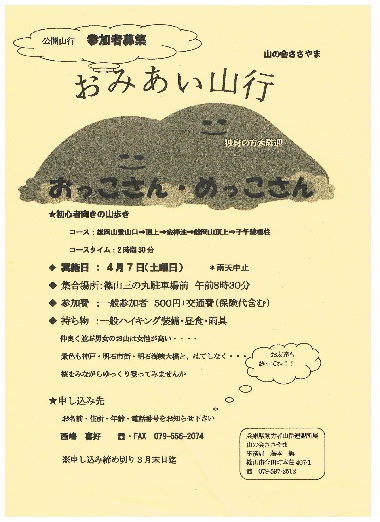 公開山行 参加者募集
山の会ささやま
おみあい山行
独身の方大歓迎
おっこさん・めっこさん
★初心者向きの山歩き
コース：雄岡山登山口→頂上→金棒池→雌岡山頂上→子午線標柱
コースタイム：2時間30分
◆ 実施日 ： 4月7日(土曜日) ＊雨天中止
◆ 集合場所：篠山三の丸駐車場前 午前8時30分
◆ 参加費 ：一般参加者 500円＋交通費(保険代含む)
◆ 持ち物 ：一般ハイキング装備・昼食・雨具
仲良く並ぶ男女のお山は女性が高い・・・・
景色も神戸・明石市街・明石海峡大橋と、はてしなく・・・
桜をみながらゆっくり登ってみませんか
お友達も
誘ってね！！
★申し込み先
お名前・住所・年齢・電話番号をお知らせ下さい
喜好 ☎・FAX 079-556-2074
※申し込み締め切り3月末日迄
兵庫県勤労者山岳連盟所属
山の会ささやま